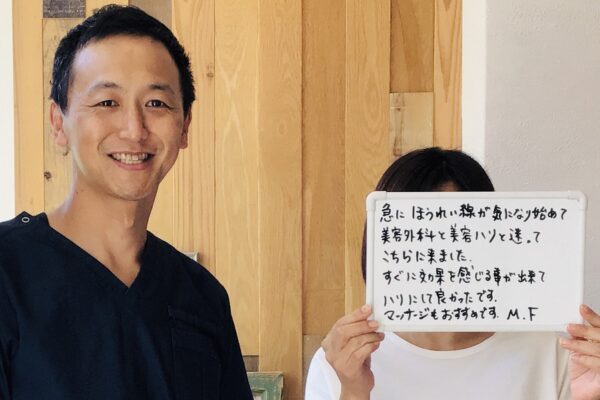 急に ほうれい線が気になり始めて
美容外科と美容ハリと迷って
こちらに来ました.
すぐに効果を感じる事が出来て
ハリにして良かったです.
マッサージもおすすめです. M.F